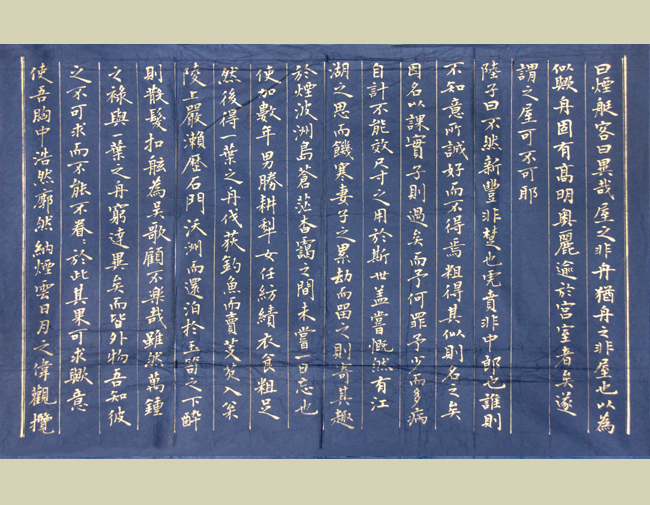 曰煙艇客曰異哉屋之非舟猶舟之非屋也以為
似歟舟固有髙明奧麗逾於宮室者矣遂
謂之屋可不可耶
陸子曰不然新豐非楚也虎賁非中郎也誰則
不知意所誠好而不得焉粗得其似則名之矣
因名以課實子則過矣而予何罪予少而多病
自計不能效尺寸之用於斯世盖嘗慨然有江
湖之思而饑寒妻子之累劫而留之則寄其趣
於煙波洲島蒼茫杳靄之間未嘗一日忘也
使加數年男勝耕犁女任紡績衣食粗足
然後得一葉之舟伐荻釣魚而賣芰芡入枀
陵上嚴瀨歷石門沃洲而還泊於玉笥之下醉
則散髮扣舷為吳歌顧不樂哉雖然萬鍾
之祿與一葉之舟窮達異矣而皆外物吾知彼
之不可求而不能不眷〻於此其果可求歟意
使吾胸中浩然廓然納煙雲日月之偉觀攬